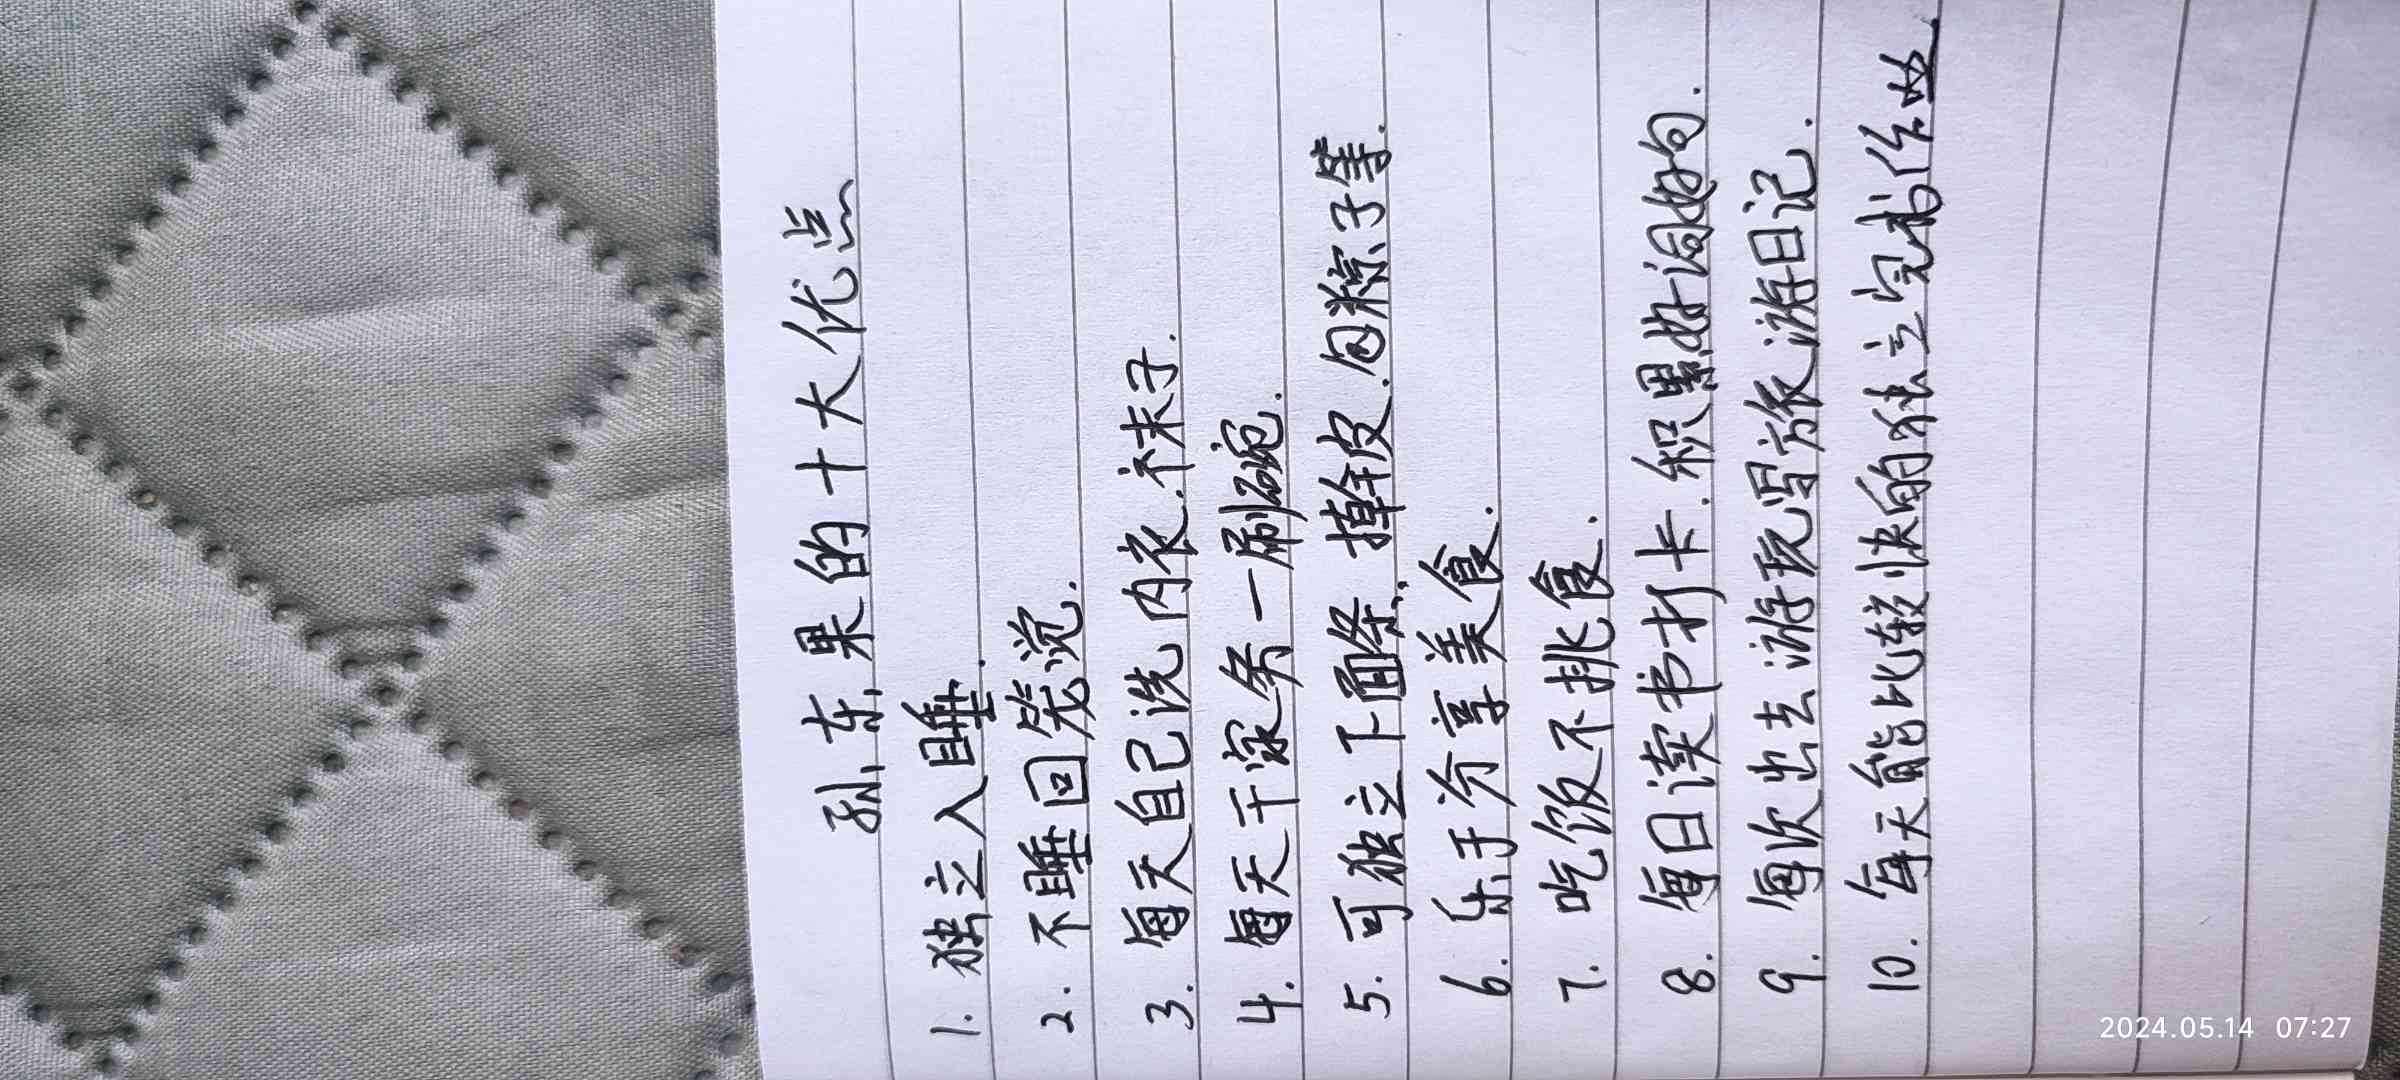 孙东果的十大优点
1. 独立入睡.
2. 不睡回笼觉.
3. 每天自己洗内衣.袜子.
4. 每天干家务一刷碗.
5. 可独立下面条. 擀皮.包粽子等.
6. 乐于分享美食.
7. 吃饭不挑食.
8. 每日读书打卡.积累好词好句.
9. 每次出去游玩写旅游日记.
10. 每天能比较快的独立完成作业
2024.05.14 07:27